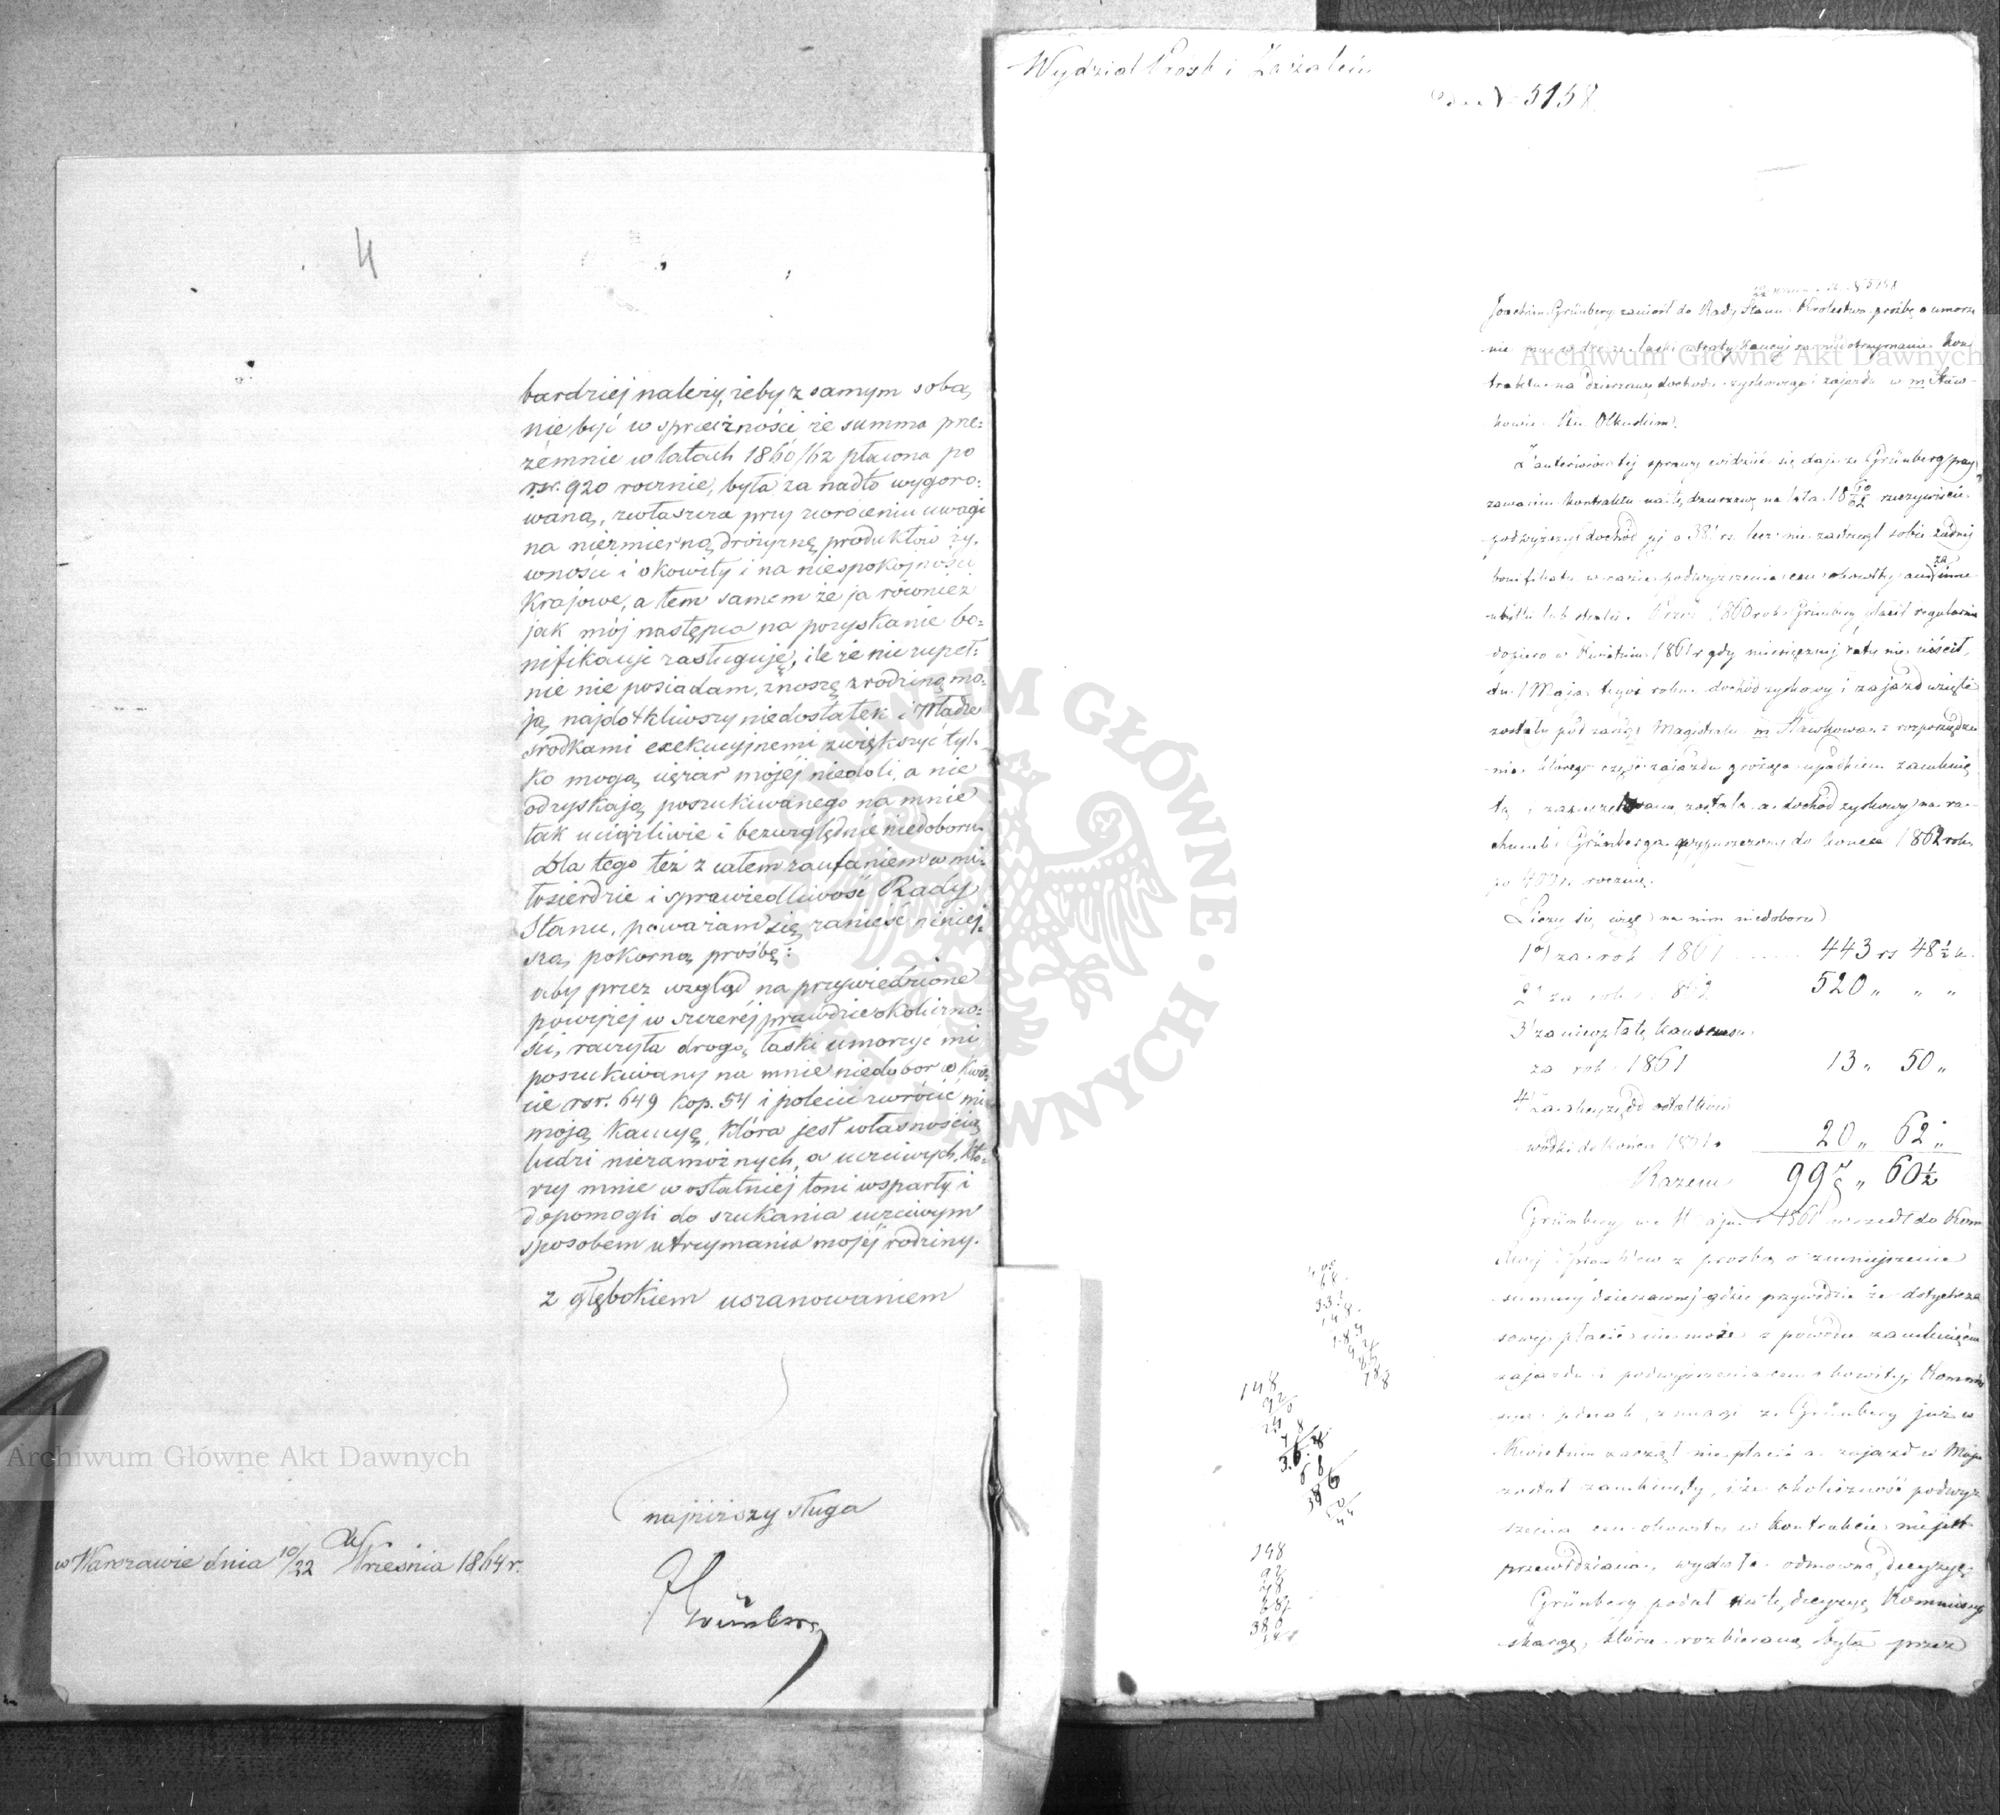 4
bardziej należy, żeby z samym sobą
nie być w sprzeczności że summa prze=
zemnie w latach 1860/62 płacona po
rsr. 920 rocznie, była za nadto wygoro=
waną, zwłaszcza przy zwróceniu uwagi
na niezmierną drożyznę produktów ży=
wności i okowity i na niespokojności
Krajowe, a tem samem że ja również
jak mój następca na pozyskanie bo=
nifikacji zasługuję, ile że nic zupeł=
nie nie posiadam, znoszę z rodziną mo=
ją najdotkliwszy niedostatek i Władze
środkami exekucyjnemi zwiększyć tyl=
ko mogą ciężar mojéj niedoli, a nie
odzyskają poszukiwanego na mnie
tak uciążliwie i bezwzględnie niedoboru.
Dla tego też z całem zaufaniem w mi=
łosierdzie i sprawiedliwość Rady
Stanu, poważam się zanieść niniej=
szą pokorną prośbę:
aby przez wzgląd na przywiedzione
powyżej w szczeréj prawdzie okoliczno=
ści, raczyła drogą łaski umorzyć mi
poszukiwany na mnie niedobór w kwo=
cie rsr. 649 kop. 54 i polecić zwrócić mi
moją Kaucyę, która jest własnością
ludzi niezamożnych, a uczciwych, któ=
rzy mnie w ostatniej toni wsparły i
dopomogli do szukania uczciwym
sposobem utrzymania mojéj rodziny.
z głębokiem uszanowaniem
najniższy sługa
w Warszawie dnia 10/22 Września 1864 r.
Grünberg
Wydział Prośb i Zażaleń
5158
Joachim Grünberg zaniósł do Rady Stanu Królestwa prośbę o umorze
nie mu w drodze łaski straty kaucyi za nieotrzymanie Kon
traktu na dzierżawę dochodu szynkowego i zajazdu w m. Sław-
kowie Pcie Olkuskim.
Z antériorów tej sprawy widzieć się daje że Grünberg przy
zawarciu kontraktu na tę dzierżawę na lata 1860/62 rzeczywiście
podwyższył dochód jej o 381 rs. lecz nie zastrzegł sobie żadnej
bonifikaty w razie podwyższenia cen okowity ani za inne
Przez 1860 rok Grünberg płacił regularnie
dopiero w Kwietniu 1861 r. gdy miesięcznej raty nie uiścił,
dn. 1 Maja tegoż roku dochód szynkowy i zajazd wzięte
zostały pod zarząd Magistratu m. Sławkowa z rozporządze
nia którego część zajazdu grożąca upadkiem zamknię
tą została a dochód szynkowy na ra=
chunek Grünberga wypuszczony do końca 1862 roku
po 400 r. rocznie.
Liczy się więc na nim niedoboru
1o) za rok 1861 ...... 443 rs 48½ k.
2o za rok 1862 520 „ „ „
3o za nieopłatę kansensu
za rok 1861 13 „ 50 „
4o
wódki do końca 1861 r. 20 „ 62 „
Razem 997 „ 60½
Grünberg w Maju 1861 wszedł do Kom
z prośbą o zmniejszenie
summy dzierżawnej gdzie przywodzi że dotychcza
sowej płacić nie może z powodu zamknięcia
zajazdu i podwyższenia cen okowity, Kommis
z uwagi że Grünberg już w
Kwietniu zaczął nie płacić a zajazd w Maju
został zamknięty, i że okoliczność podwyż
szenia cen okowity w Kontrakcie nie jest
przewidziana, wydała odmowną decyzyę.
Grünberg podał na tę decyzyę Kommissyi
skargę, która rozbieraną była przez
148
148
Archiwum Główne Akt Dawnych
Archiwum Główne Akt Dawnych
ARCHIWUM GŁÓWNE AKT DAWNYCH